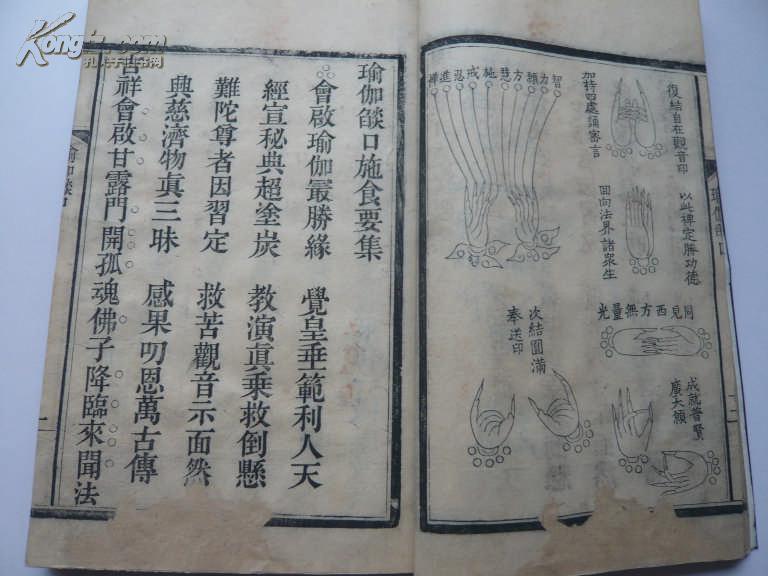 智力願方慧施戒忍進禪
復結自在觀音印
加持四處誦密言
以此禪定勝功德
回向法界諸眾生
同見西方無量光
次結圓滿
奉送印
成就普賢
廣大願
瑜伽燄口施食要集
會啟瑜伽最勝緣 覺皇垂範利人天
經宣秘典超塗炭 教演真乘救倒懸
難陀尊者因習定 救苦觀音示面然
興慈濟物真三昧 感果叨恩萬古傳
吉祥會啟甘露門開孤魂佛子降臨來聞法
瑜伽燄口
一
Kongfz.com
孔夫子舊書網